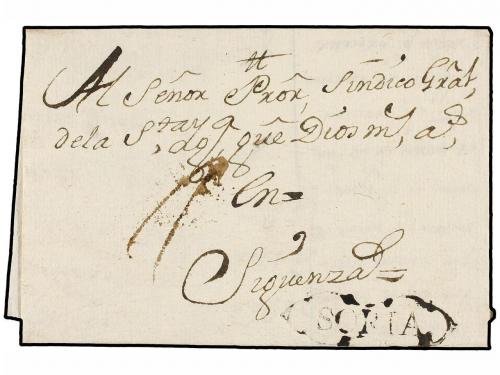 Al Señor Pror, Sindico Gral,
de la que Dios m, a,
En=
Siguenza=
SORIA